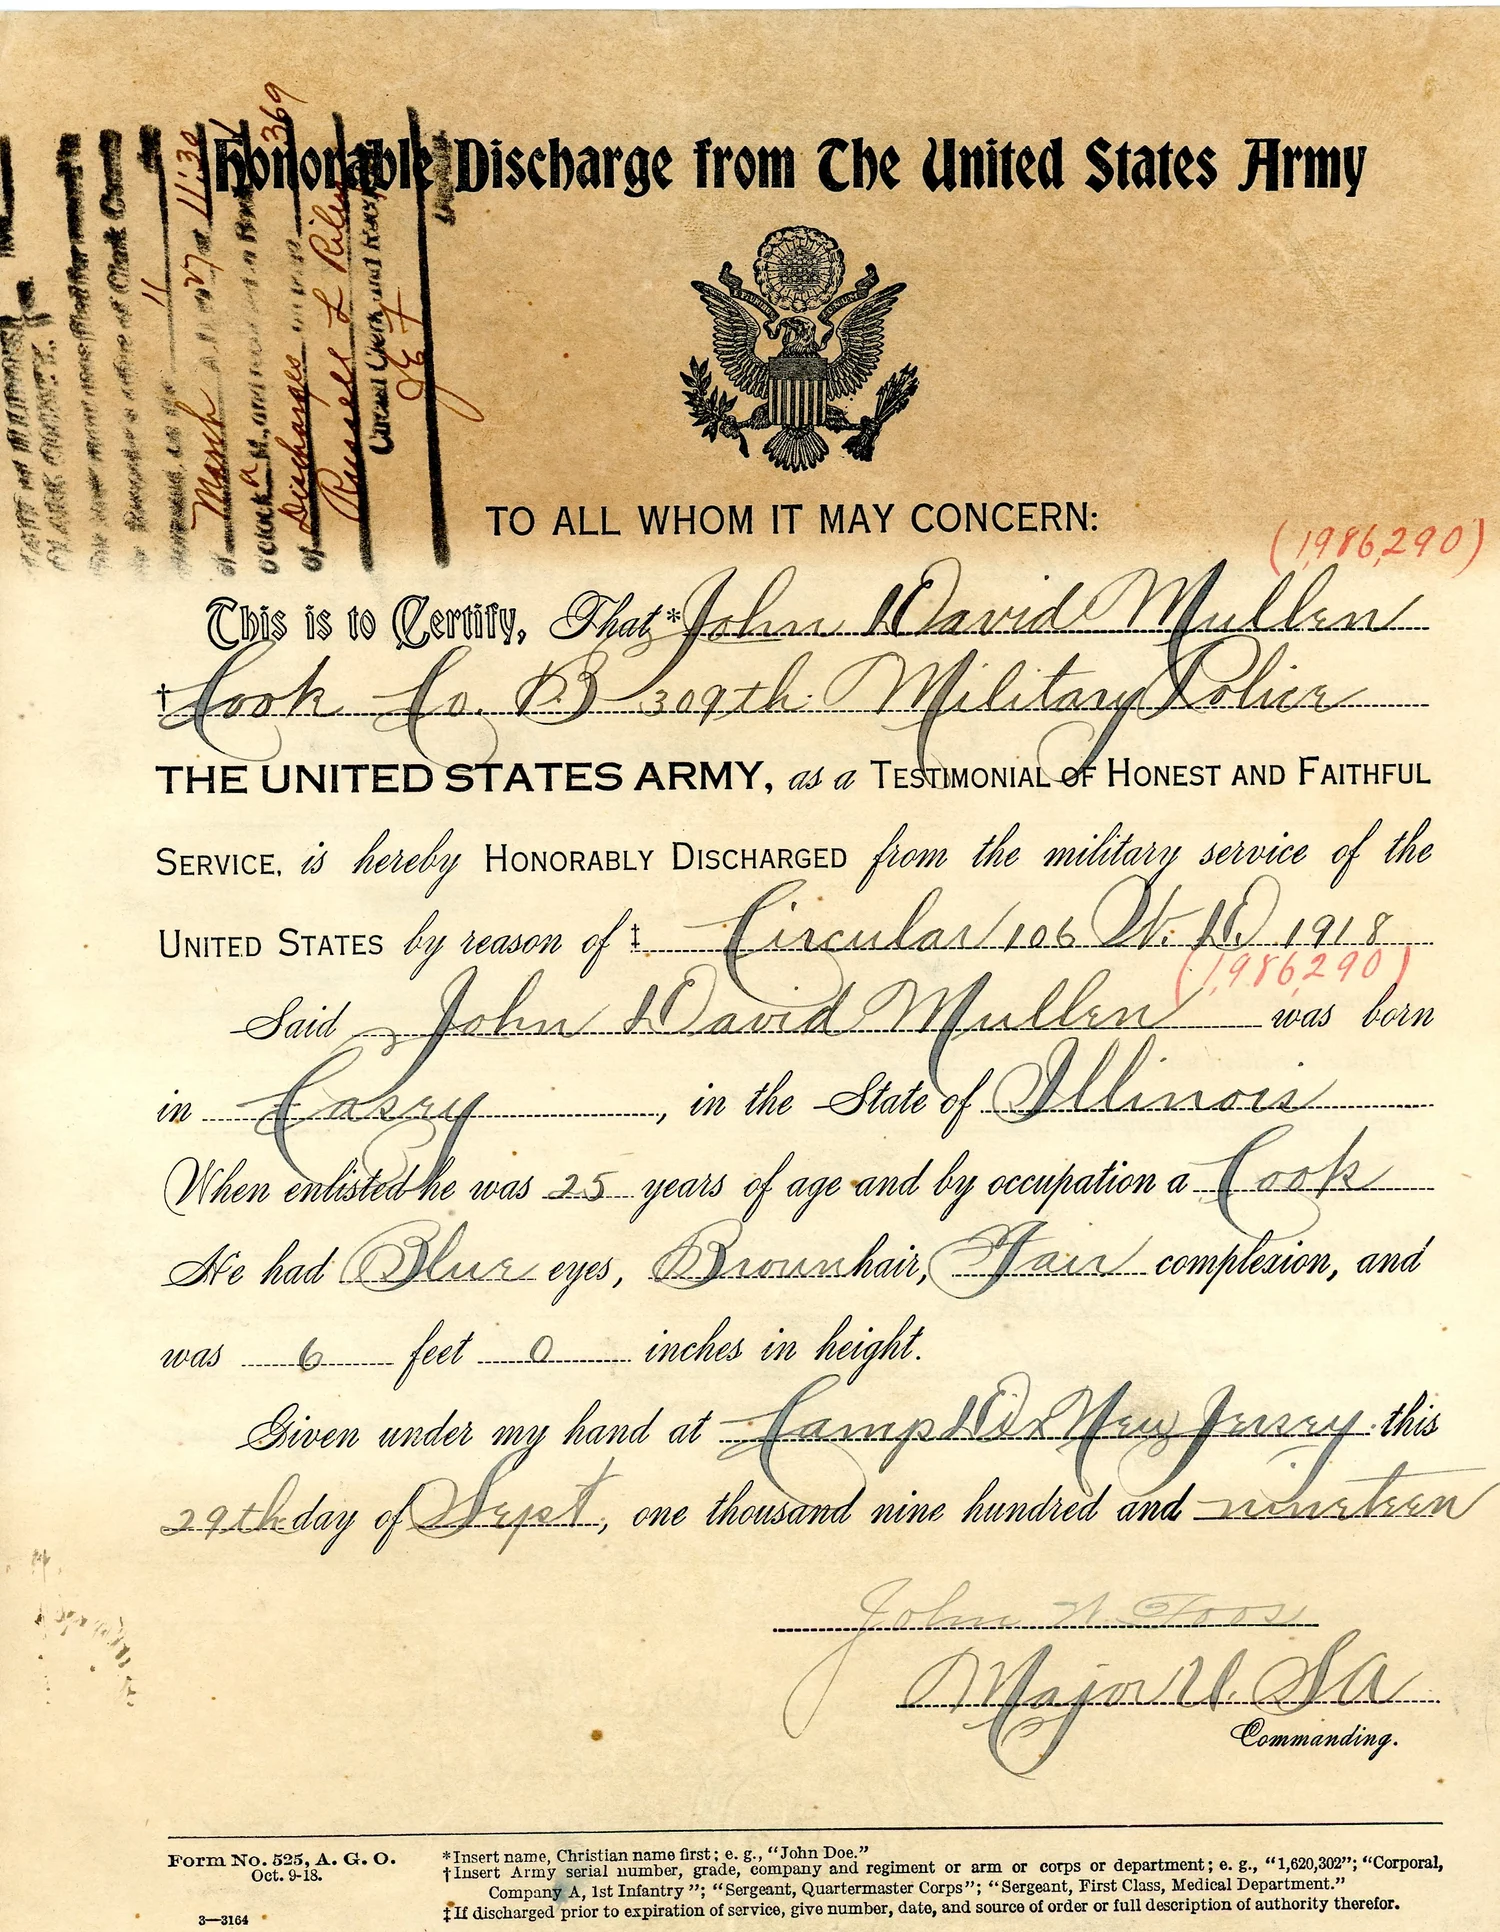 Honorable Discharge from The United States Army
March 27 at 11:30
Discharges
369
Russell L Riley
TO ALL WHOM IT MAY CONCERN:
(1,986,290)
This is to Certify, That * John David Mullen
† Cook Co. B 309th Military Police
THE UNITED STATES ARMY, as a TESTIMONIAL OF HONEST AND FAITHFUL
SERVICE, is hereby HONORABLY DISCHARGED from the military service of the
UNITED STATES by reason of ‡ Circular 106 W. D. 1918
(1,986,290)
Said John David Mullen was born
in Casey, in the State of Illinois
When enlisted he was 25 years of age and by occupation a Cook
He had Blue eyes, Brown hair, Fair complexion, and
was 6 feet 0 inches in height.
Given under my hand at Camp Dix New Jersey this
29th day of Sept, one thousand nine hundred and nineteen
John W. Foos
Major U. S A
Commanding.
Form No. 525, A. G. O.
Oct. 9-18.
3—3164
*Insert name, Christian name first; e. g., "John Doe."
†Insert Army serial number, grade, company and regiment or arm or corps or department; e. g., "1,620,302"; "Corporal,
Company A, 1st Infantry"; "Sergeant, Quartermaster Corps"; "Sergeant, First Class, Medical Department."
‡If discharged prior to expiration of service, give number, date, and source of order or full description of authority therefor.